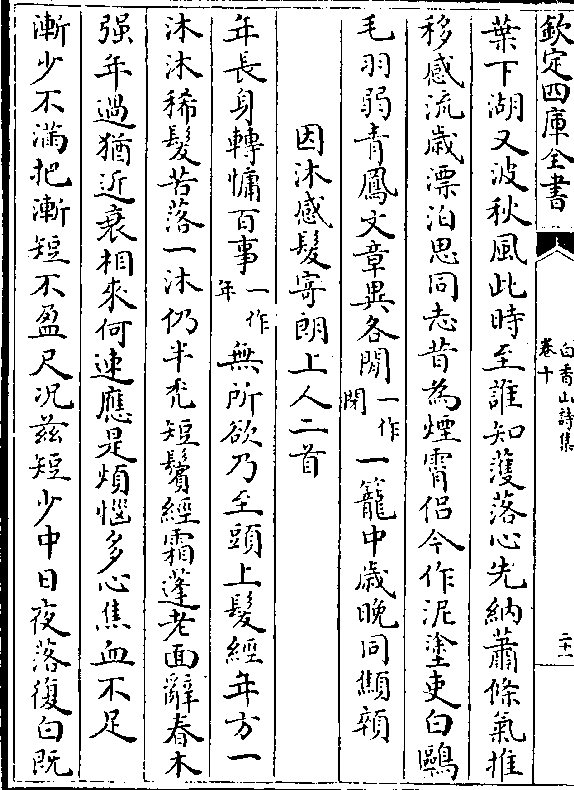 欽定四庫全書
白香山詩集
卷十
二十一
葉下湖又波秋風此時至誰知濩落心先納蕭條氣推
移感流歲漂泊思同志昔為煙霄侣今作泥塗吏白鷗
毛羽弱青鳳文章異各閒一作閉一籠中歲晚同顦顇
因沐感髮寄朗上人二首
年長身轉慵百事一作年無所欲乃至頭上髮經年方一
沐沐稀髮苦落一沐仍半禿短鬢經霜蓬老面辭春木
强年過猶近衰相來何速應是煩惱多心焦血不足
漸少不滿把漸短不盈尺况兹短少中日夜落復白既